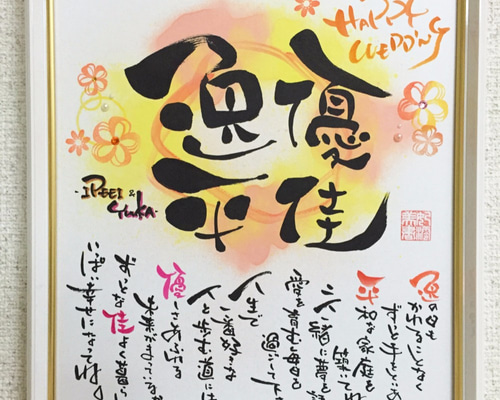 HAPPY
WEDDING
優佳
逸平
IPPEI &
Yuka
逸の日も
かわることなく
平和な家庭を
築いてね
二人一緒に夢を
愛を育む毎日を
過ごして
人生で
一番好きな
人と歩む道には
優しさあふれる
未来がまっている
佳く暮ら
いっぱい幸せになってね